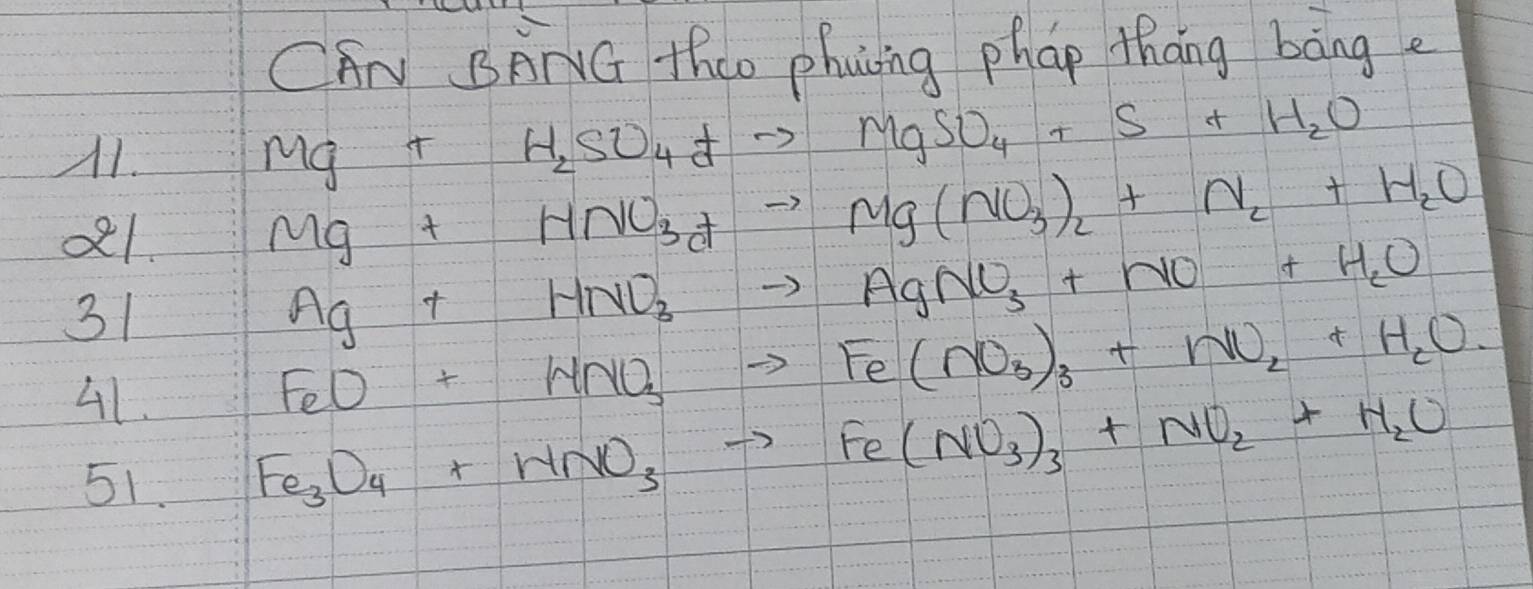 CÂN BẰNG theo phương pháp thăng bằng e
1/. Mg + H₂SO₄đ → MgSO₄ + S + H₂O
2/. Mg + HNO₃đ → Mg(NO₃)₂ + N₂ + H₂O
3/ Ag + HNO₃ → AgNO₃ + NO + H₂O
4/. FeO + HNO₃ → Fe(NO₃)₃ + NO₂ + H₂O.
5/. Fe₃O₄ + HNO₃ → Fe(NO₃)₃ + NO₂ + H₂O